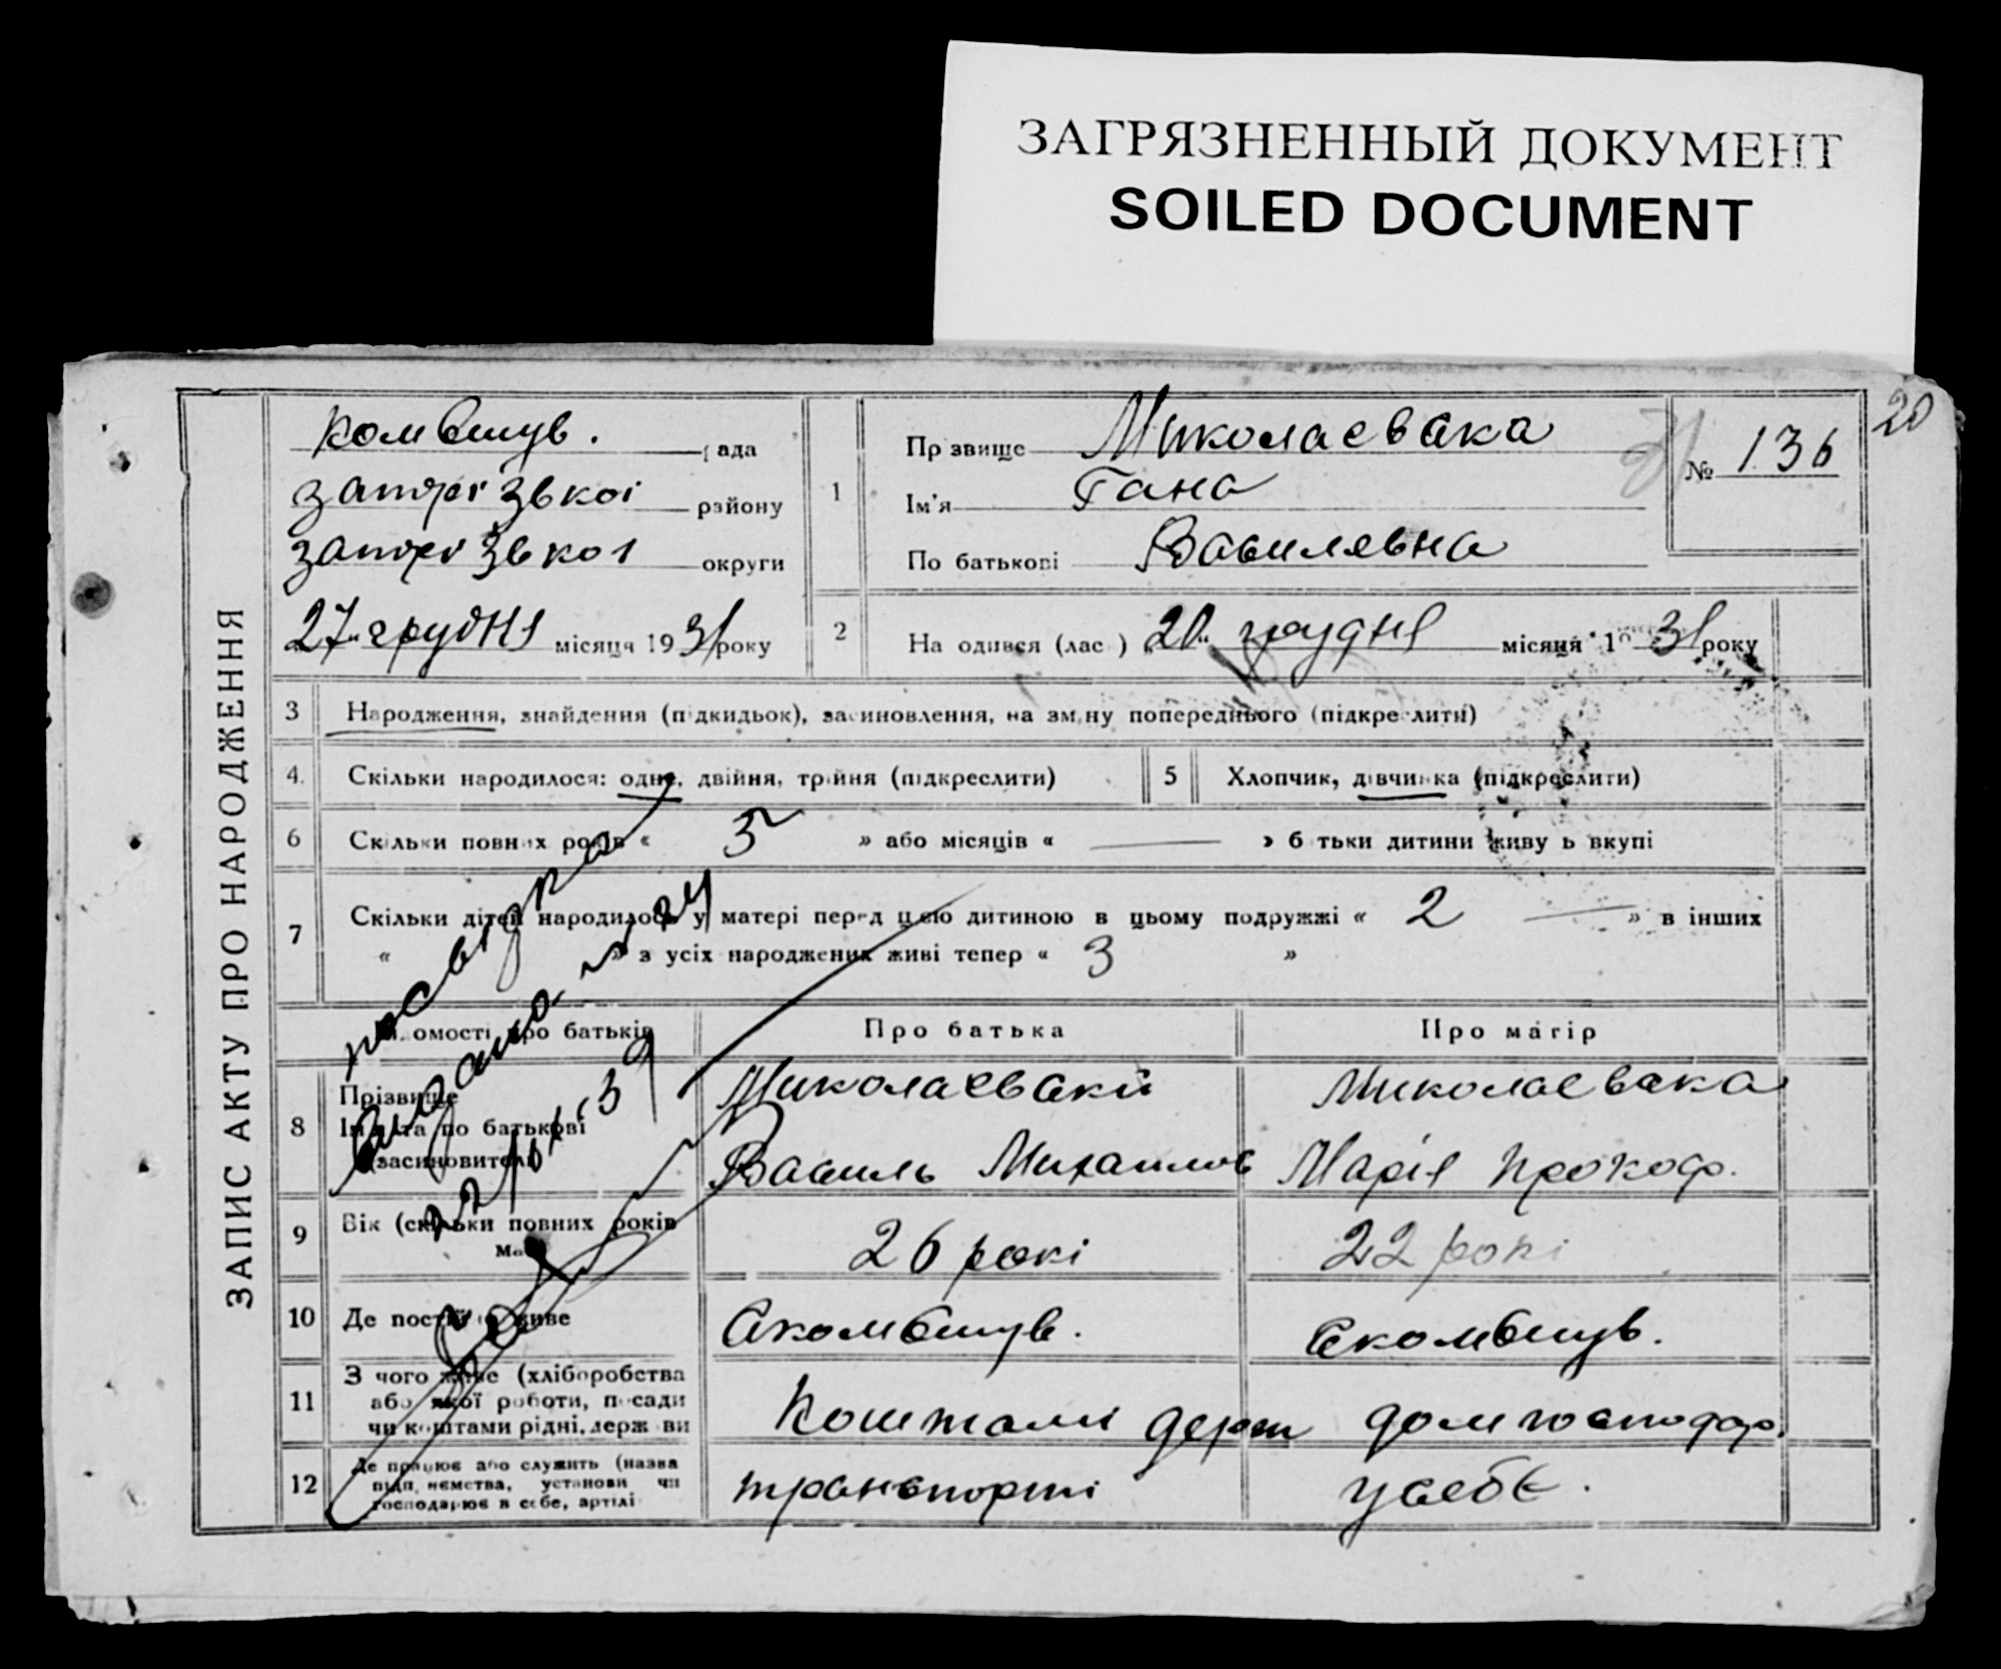 ЗАГРЯЗНЕННЫЙ ДОКУМЕНТ
SOILED DOCUMENT
20
ЗАПИС АКТУ ПРО НАРОДЖЕННЯ
комбишув. рада
запорізькоі району
запорізькоі округи
27 грудня місяця 1931 року
1
Прізвище Миколаевська
Ім'я Гана
По батькові Васильевна
№ 136
2
Народився (лась) 20 грудня місяця 1931 року
3 Народження, знайдення (підкидьок), засиновлення, на зміну попереднього (підкреслити)
4. Скільки народилося: одне, двійня, трійня (підкреслити)
5 Хлопчик, дівчинка (підкреслити)
6 Скільки повних років « 5 » або місяців « — » батьки дитини живуть вкупі
7 Скільки дітей народилось у матері перед цією дитиною в цьому подружжі « 2 — » в інших
« » з усіх народжених живі тепер « 3 »
Відомості про батьків
Про батька
Про матір
8 Прізвище
Ім'я та по батькові
(засиновителів)
Миколаевский
Василь Михаилов
Миколаевска
Марія Прокоф.
9 Вік (скільки повних років
має)
26 рокі
22 рокі
10 Де постійно живе
Скомбишув.
Скомбишув.
11 З чого живе (хліборобства
або якої роботи, посади
чи коштами рідні, держави
Коштами держ
домгосподар.
12 Де працює або служить (назва
підприємства, установи чи
господарює в себе, артілі
транспорті
усебе.
посвідка
видана